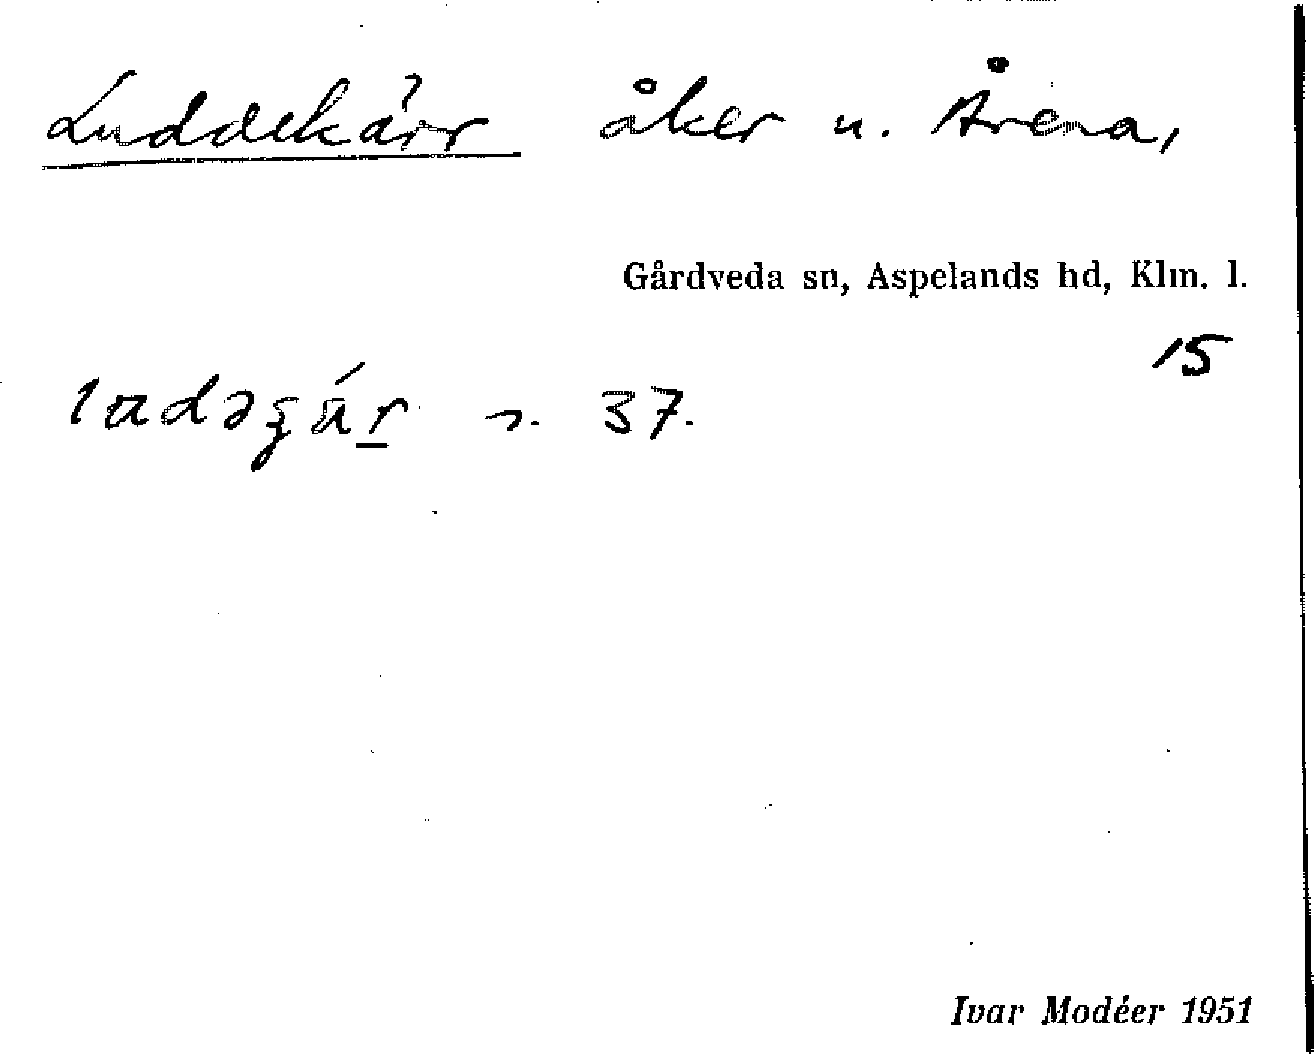 Luddekärr åker u. Årena,
Gårdveda sn, Aspelands hd, Klm. l.
15
37.
Ivar Modéer 1951